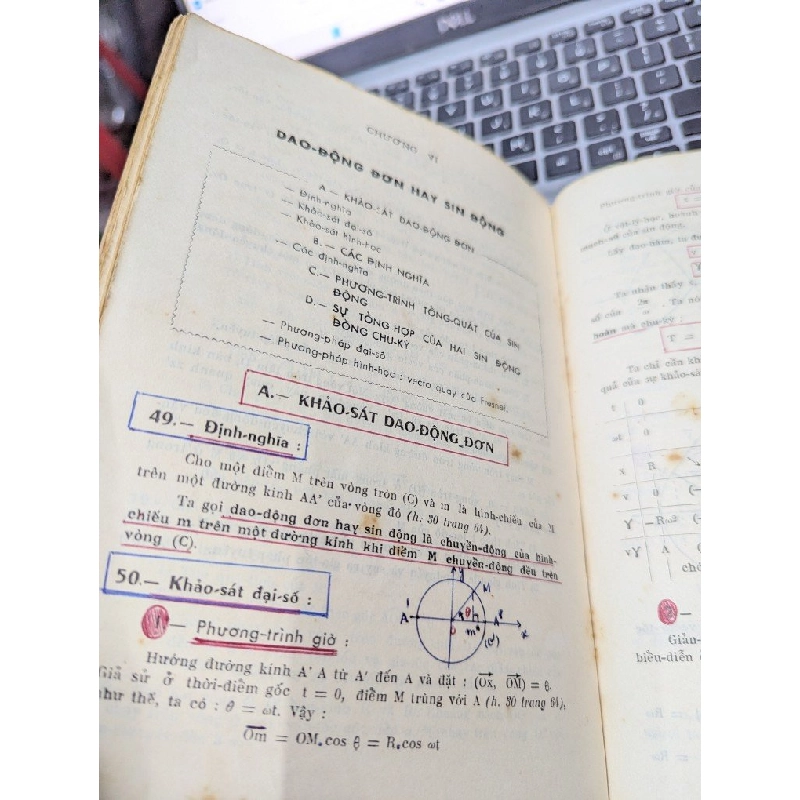 DELL
CHƯƠNG VI
DAO-ĐỘNG ĐƠN HAY SIN ĐỘNG
A — KHẢO-SÁT DAO-ĐỘNG ĐƠN
— Định-nghĩa
— Khảo-sát đại-số
— Khảo-sát hình-học
B. — CÁC ĐỊNH NGHĨA
— Các định-nghĩa
C. — PHƯƠNG-TRÌNH TỔNG-QUÁT CỦA SIN
ĐỘNG
D. — SỰ TỔNG HỢP CỦA HAI SIN ĐỘNG
ĐỒNG CHU-KỲ
— Phương-pháp đại-số
— Phương-pháp hình-học : vectơ quay của Fresnel.
A. — KHẢO-SÁT DAO-ĐỘNG ĐƠN
49. — Định-nghĩa :
Cho một điểm M trên vòng tròn (C) và m là hình-chiếu của M
trên một đường kính AA' của vòng đó (h. 30 trang 64).
Ta gọi dao-động đơn hay sin động là chuyển-động của hình-
chiếu m trên một đường kính khi điểm M chuyển-động đều trên
vòng (C).
50. — Khảo-sát đại-số :
y
M
A' θ A
O m x
(C)
— Phương-trình giờ :
Hướng đường kính A' A từ A' đến A và đặt : (Ox, OM) = θ.
Giả sử ở thời-điểm gốc t = 0, điểm M trùng với A (h. 30 trang 64),
như thế, ta có : θ = ωt. Vậy :
Om = OM.cos θ = R.cos ωt
Phương-trình giờ
Ở cơ-học,
Lấy đạo-hàm, ta
Ta nhận thấy
số của
hoàn mà chu-kỳ :
T =
Ta chỉ cần
quả của sự khảo-sá
t 0
ωt 0
x R
v 0
γ −Rω²
vγ A
Giản-
biểu-diễn